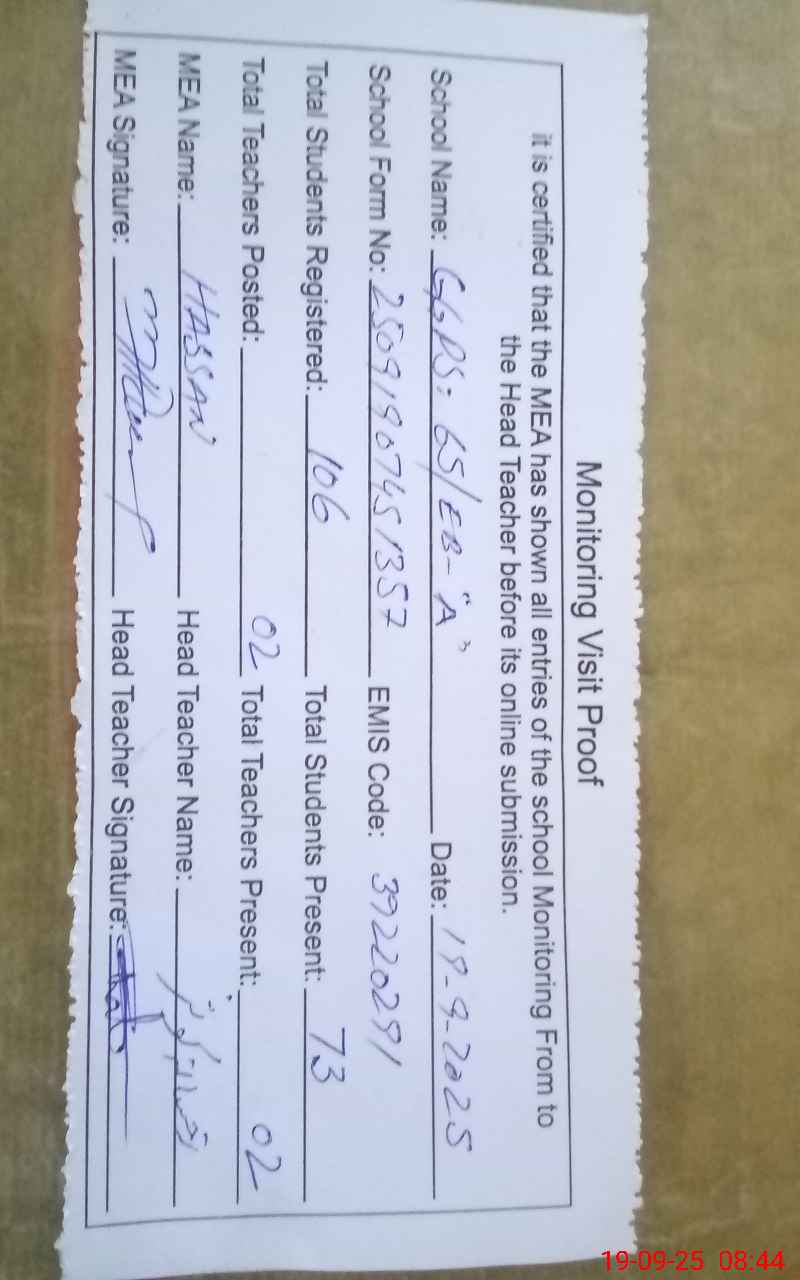 Monitoring Visit Proof
it is certified that the MEA has shown all entries of the school Monitoring From to
the Head Teacher before its online submission.
School Name: GGPS: 65/EB-"A" Date: 19-9-2025
School Form No: 25091907451357 EMIS Code: 39220291
Total Students Registered: 106 Total Students Present: 73
Total Teachers Posted: 02 Total Teachers Present: 02
MEA Name: HASSAN Head Teacher Name:
MEA Signature: Head Teacher Signature:
19-09-25 08:44